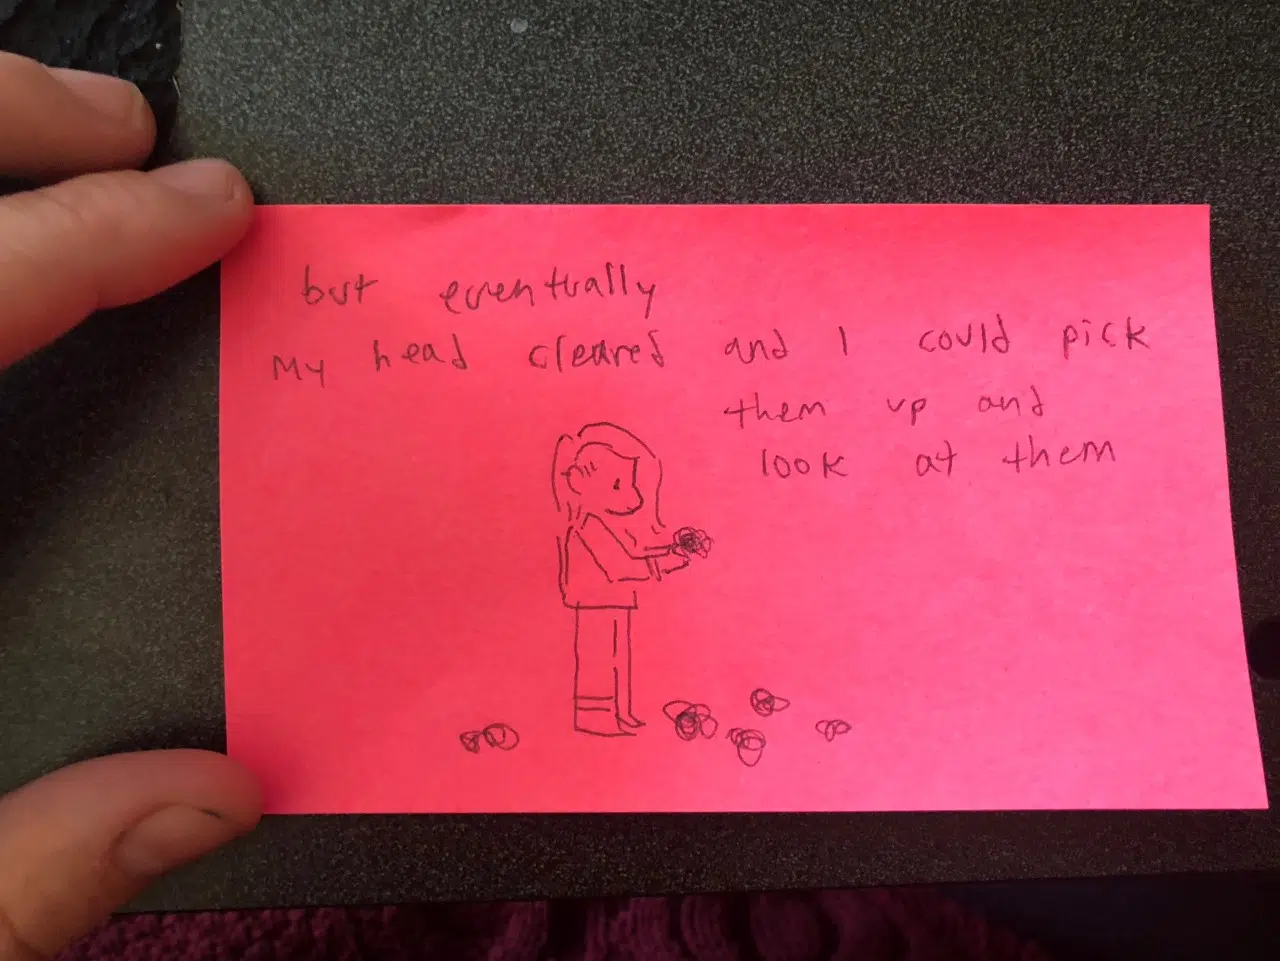 but eventually
My head cleared and I could pick
them up and
look at them